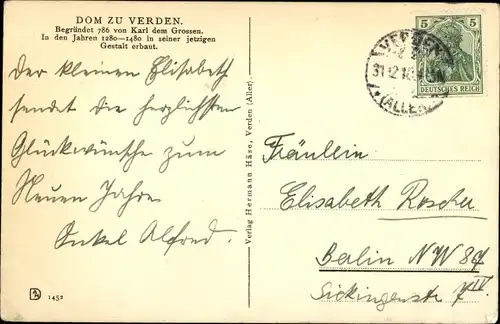 DOM ZU VERDEN.
Begründet 786 von Karl dem Grossen.
In den Jahren 1280—1480 in seiner jetzigen
Gestalt erbaut.
Der kleinen Elisabeth
sendet die herzlichsten
Glückwünsche zum
Neuen Jahre
Onkel Alfred.
1452
Verlag Hermann Häse, Verden (Aller).
5 5
DEUTSCHES REICH
VERDEN
31 12
(ALLER)
Fräulein
Elisabeth Roscher
Berlin NW 87
Sickingenstr 7 IV.